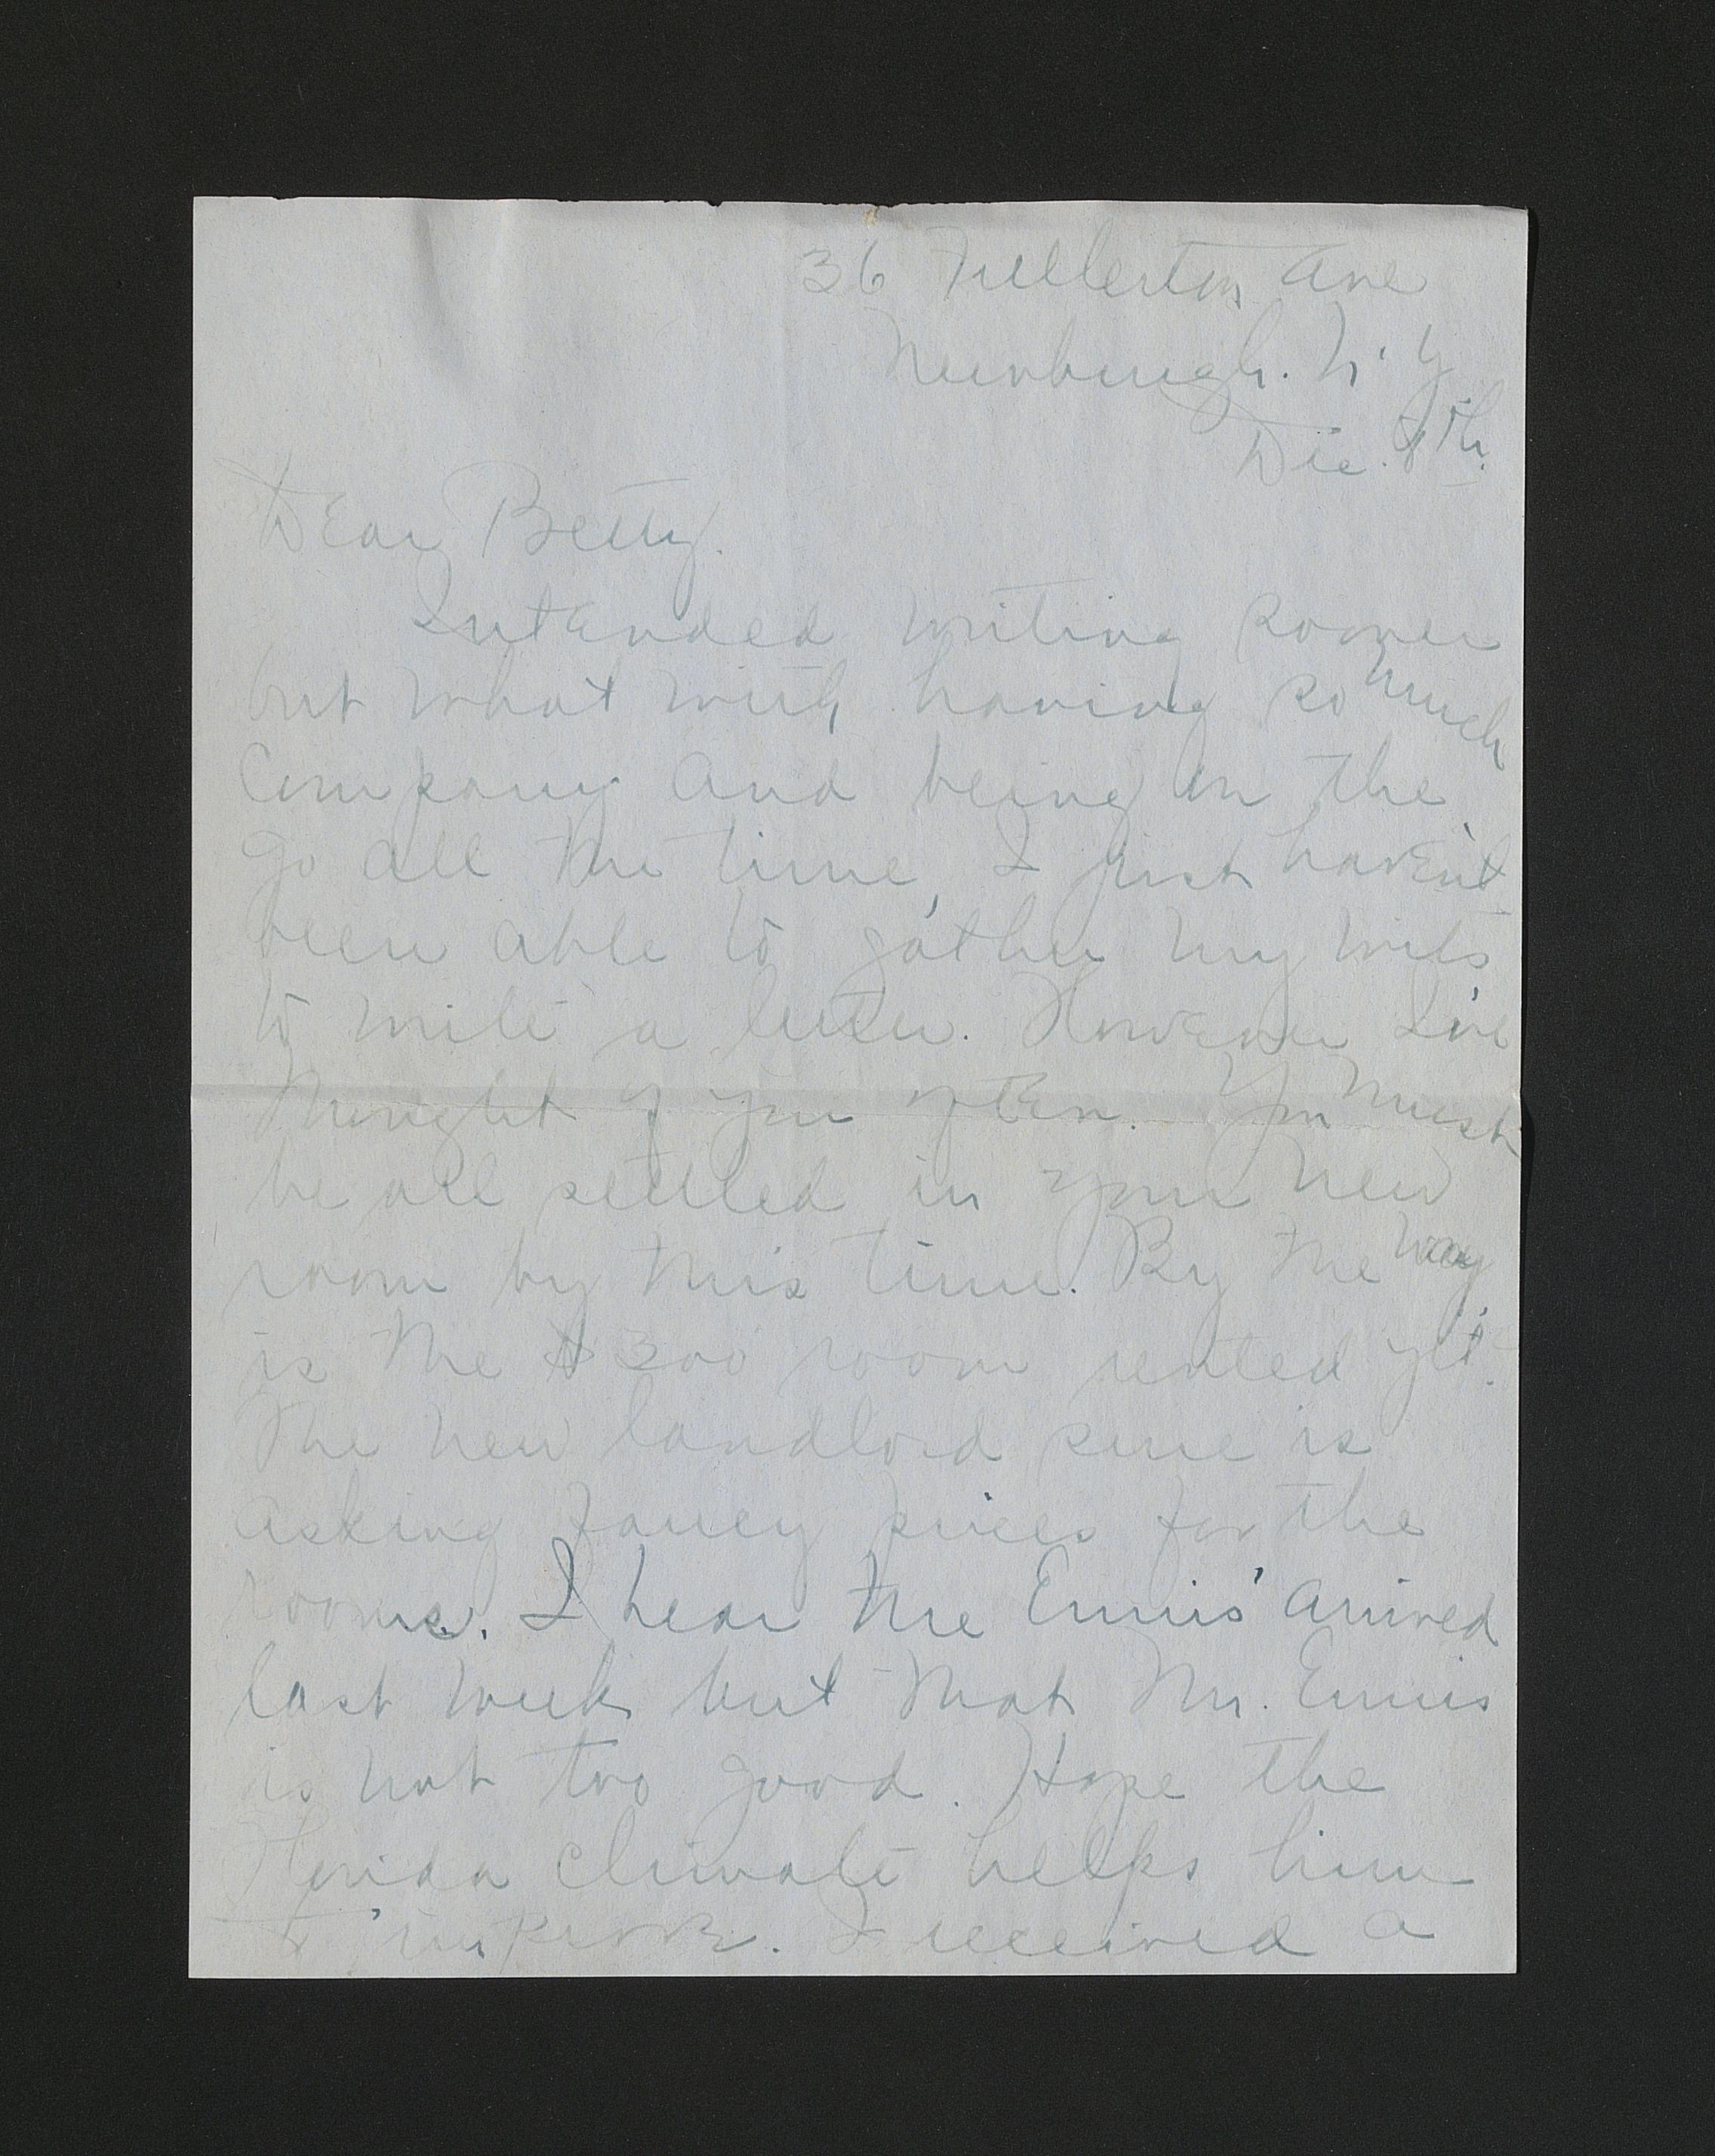 36 Fullerton Ave
Newburgh. N. Y
Dec. 8th.
Dear Betty.
Intended writing sooner
but what with having so much
Company and being on the
go all the time, I just haven't
been able to gather my wits
to write a letter. However I've
thought of you often. You must
be all settled in your new
room by this time. By the way
is the $300 room rented yet.
The new landlord sure is
asking fancy prices for the
rooms. I hear the Ennis' arrived
last week but that Mr. Ennis
is not too good. Hope the
Florida climate helps him
to improve. I received a